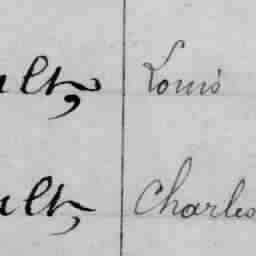 ult, Louis
ult, Charles